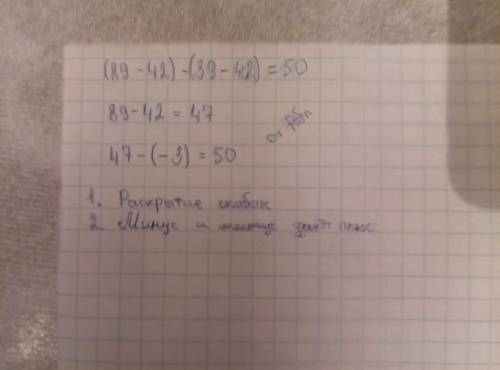 (89-42)-(39-42)=50
89-42=47
47-(-3)=50
от
1. Раскрытие скобок
2. Минус и минус даёт плюс